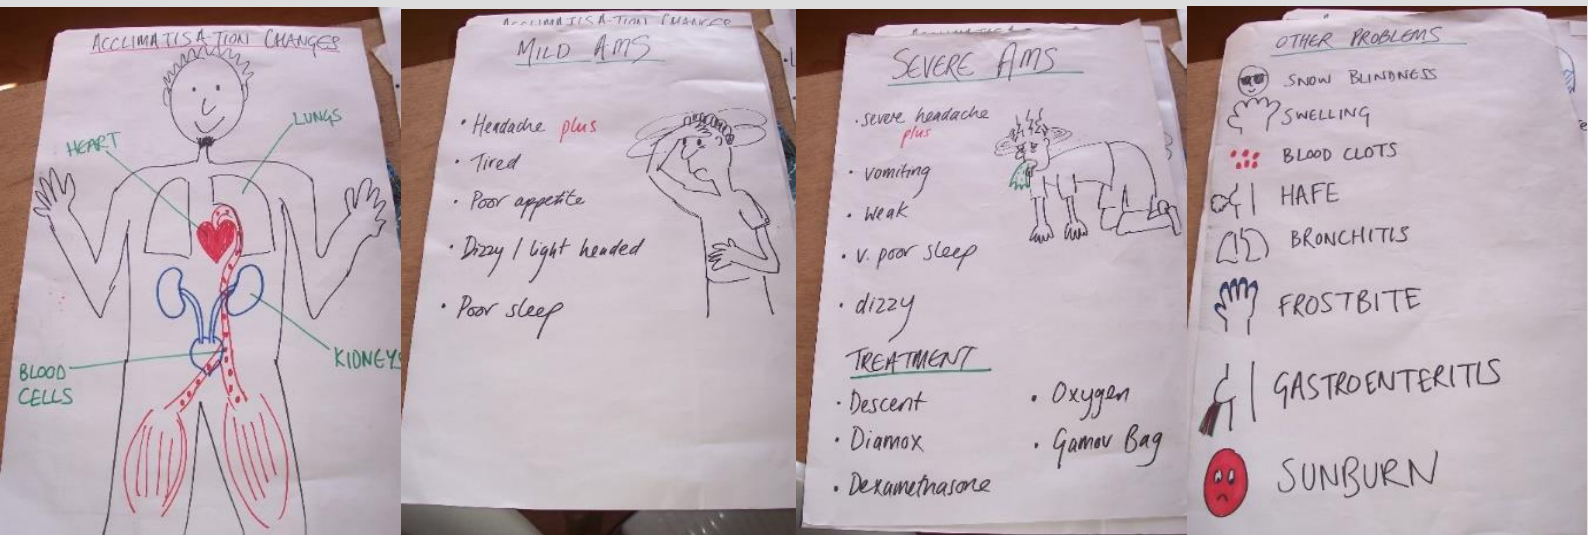 ACCLIMATISATION CHANGES
LUNGS
HEART
KIDNEYS
BLOOD
CELLS
ACCLIMATISATION CHANGES
MILD AMS
• Headache plus
• Tired
• Poor appetite
• Dizzy / light headed
• Poor sleep
SEVERE AMS
• severe headache
plus
• vomiting
• weak
• v. poor sleep
• dizzy
TREATMENT
• Descent
• Diamox
• Dexamethasone
• Oxygen
• Gamov Bag
OTHER PROBLEMS
SNOW BLINDNESS
SWELLING
BLOOD CLOTS
HAFE
BRONCHITIS
FROSTBITE
GASTROENTERITIS
SUNBURN